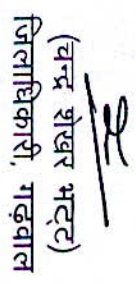 (चन्द्र शेखर भट्ट)
जिलाधिकारी, गढ़वाल